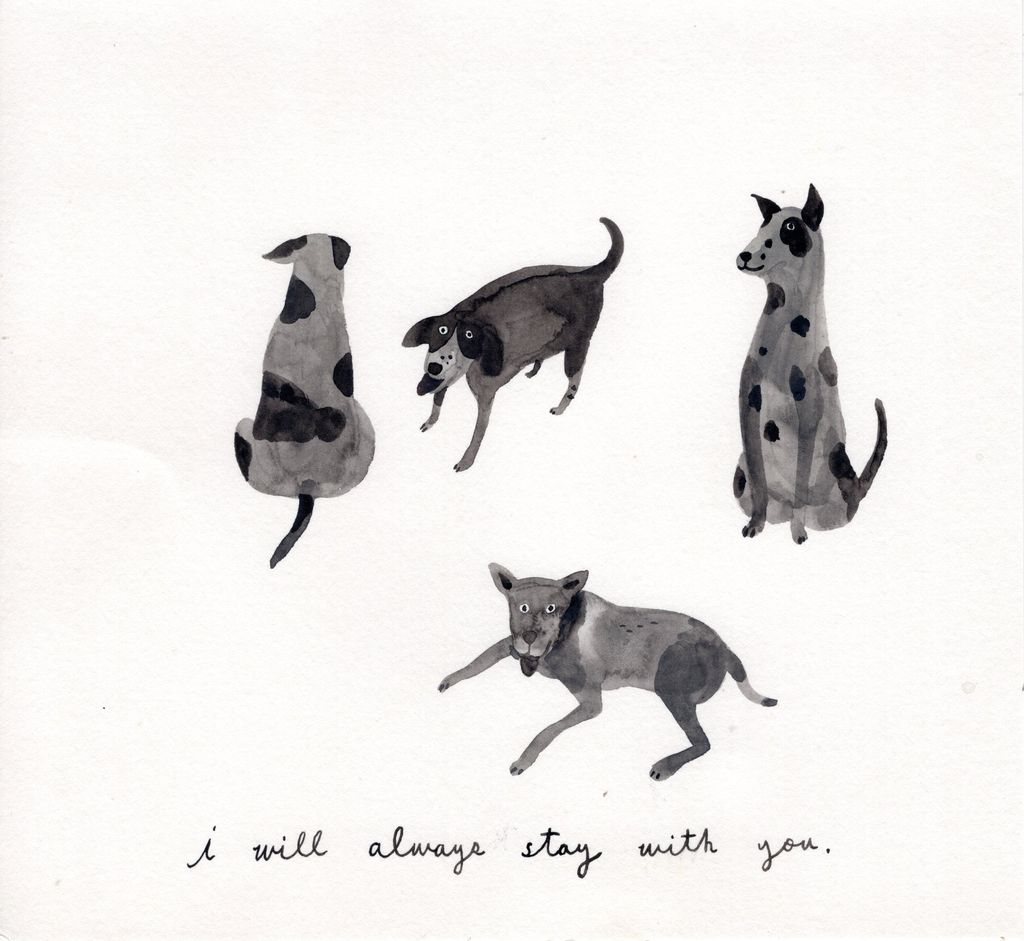 i will always stay with you.